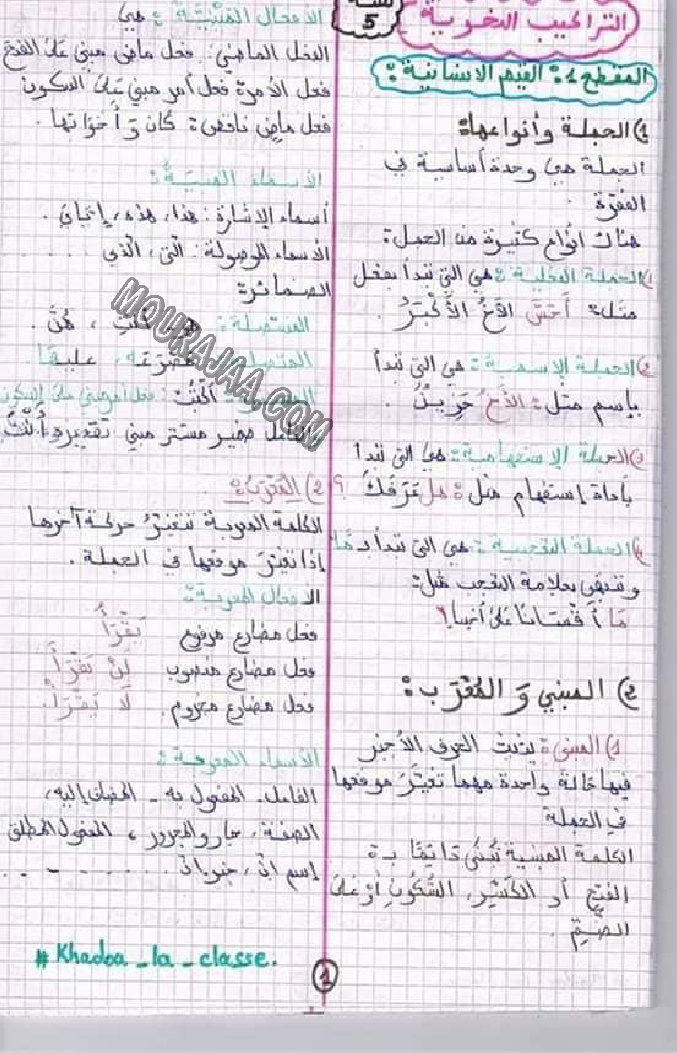 التراكيب النحوية
5
المقطع 1: القيم الإنسانية:
1) الجملة وأنواعها:
الجملة هي وحدة أساسية في
الفقرة.
هناك أنواع كثيرة من الجمل:
1) الجملة الفعلية: هي التي تبدأ بفعل
مثل: أَحَسَّ الأخُ الأَكْبَرُ.
2) الجملة الإسمية: هي التي تبدأ
بإسم مثل: الأَخُ حَزِينٌ.
3) الجملة الإستفهامية: هي التي تبدأ
بأداة إستفهام مثل: هل عَرَفَكَ؟
4) الجملة التعجبية: هي التي تبدأ بـ مَا
وتنتهي بعلامة التعجب مثل:
مَا أَقْسَانَا عَلَى أخينا!
2) المبني وَ المُعْرَب:
1) المبني: يثبت الحرف الأخير
فيها حالة واحدة مهما تغيَّرَ موقعها
في الجملة
الكلمة المبنية تُبْنَى دَائِمًا بـ:
الفتحِ أو الكَسْرِ، السُّكُونِ أوْ عَلَى
الضَّمِّ.
الأفعال المَبْنِيَّة: هي
الفعل الماضي: فعل ماض مبني عَلَى الفتح
فعل الأمر: فعل أمر مبني عَلَى السكون
فعل ماضٍ ناقص: كَانَ وَ أَخَوَاتها.
الأسماء المبنيَةُ:
أسماء الإشارة: هذا، هذه، إِثنَان.
الأسماء الموصولة: التي، الَّذي .....
الضمائر:
المنفصلة: ، هُنَّ.
المتصلة: ، عليها.
أُكْتُبْ: فعل أمر مبني على السكون
الفاعل ضمير مستتر مبني تقديره أَنْتَ
2) المُعْرَبُ:
الكلمة المعربة تتغيَّرُ حركة آخرها
إذا تغيَّرَ موقعها في الجملة.
الأفعال المعربة:
فعل مضارع مرفوع يَقْرَأُ
فعل مضارع منصوب لَنْ يَقْرَأَ
فعل مضارع مجزوم. لَا يَقْرَأْ.
الأسماء المعربة:
الفاعل - المفعول به - المضاف إليه،
الصفة، جار والمجرور، المفعول المطلق
إسم إنَّ، خبر إنَّ .......
# Khadoa_la_classe.
1
MOURAJAA.COM